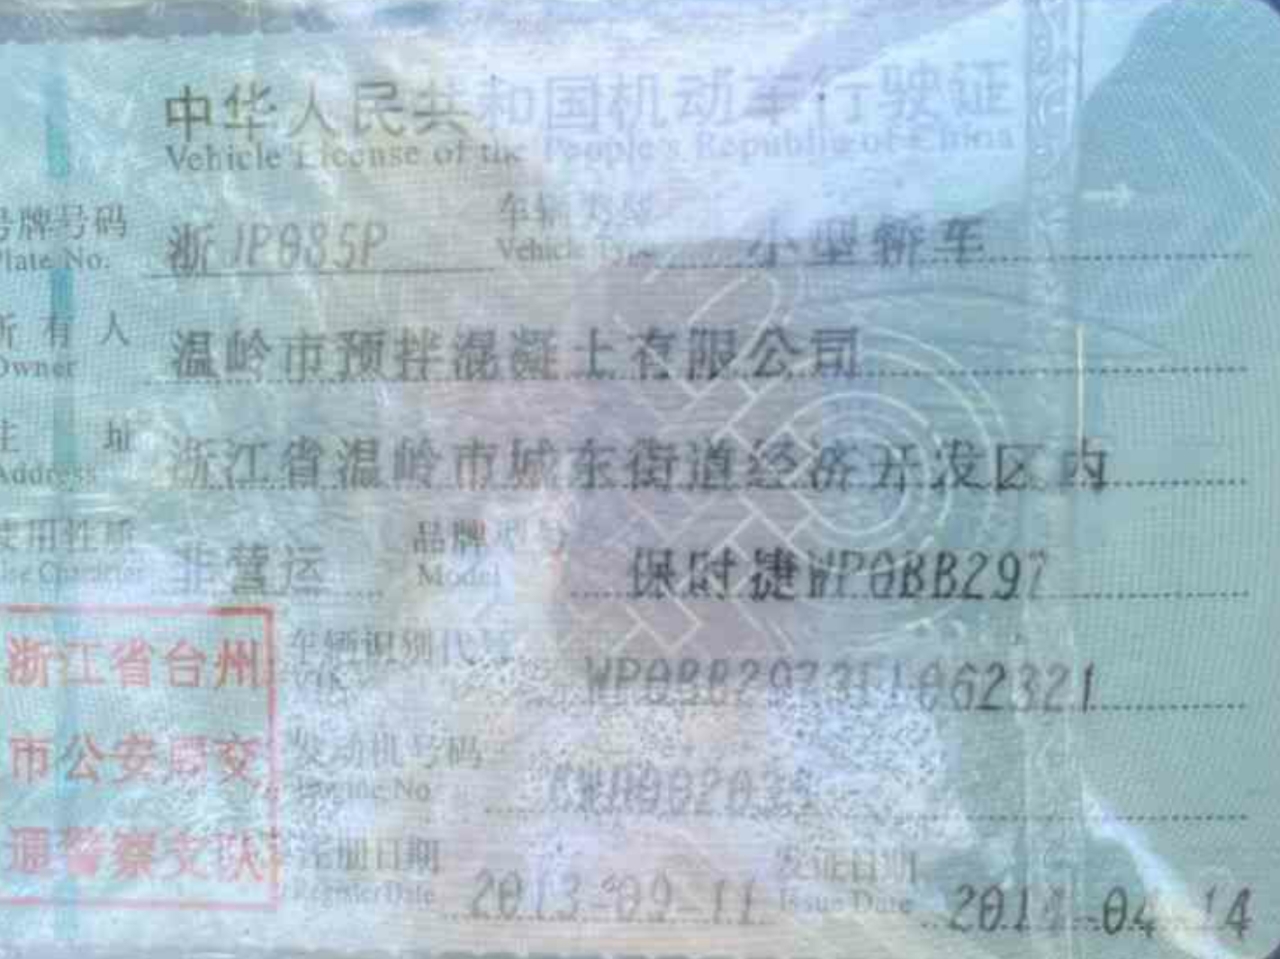 中华人民共和国机动车行驶证
Vehicle License of the People's Republic of China
号牌号码 浙JP085P 车辆类型 小型轿车
Plate No. Vehicle Type
所有人 温岭市预拌混凝土有限公司
Owner
住址 浙江省温岭市城东街道经济开发区内
Address
使用性质 非营运 品牌型号 保时捷WP0BB297
Use Character Model
浙江省台州 车辆识别代号
市公安局交 发动机号码
Engine No.
通警察支队 注册日期 2013-09-11 发证日期
Register Date Issue Date